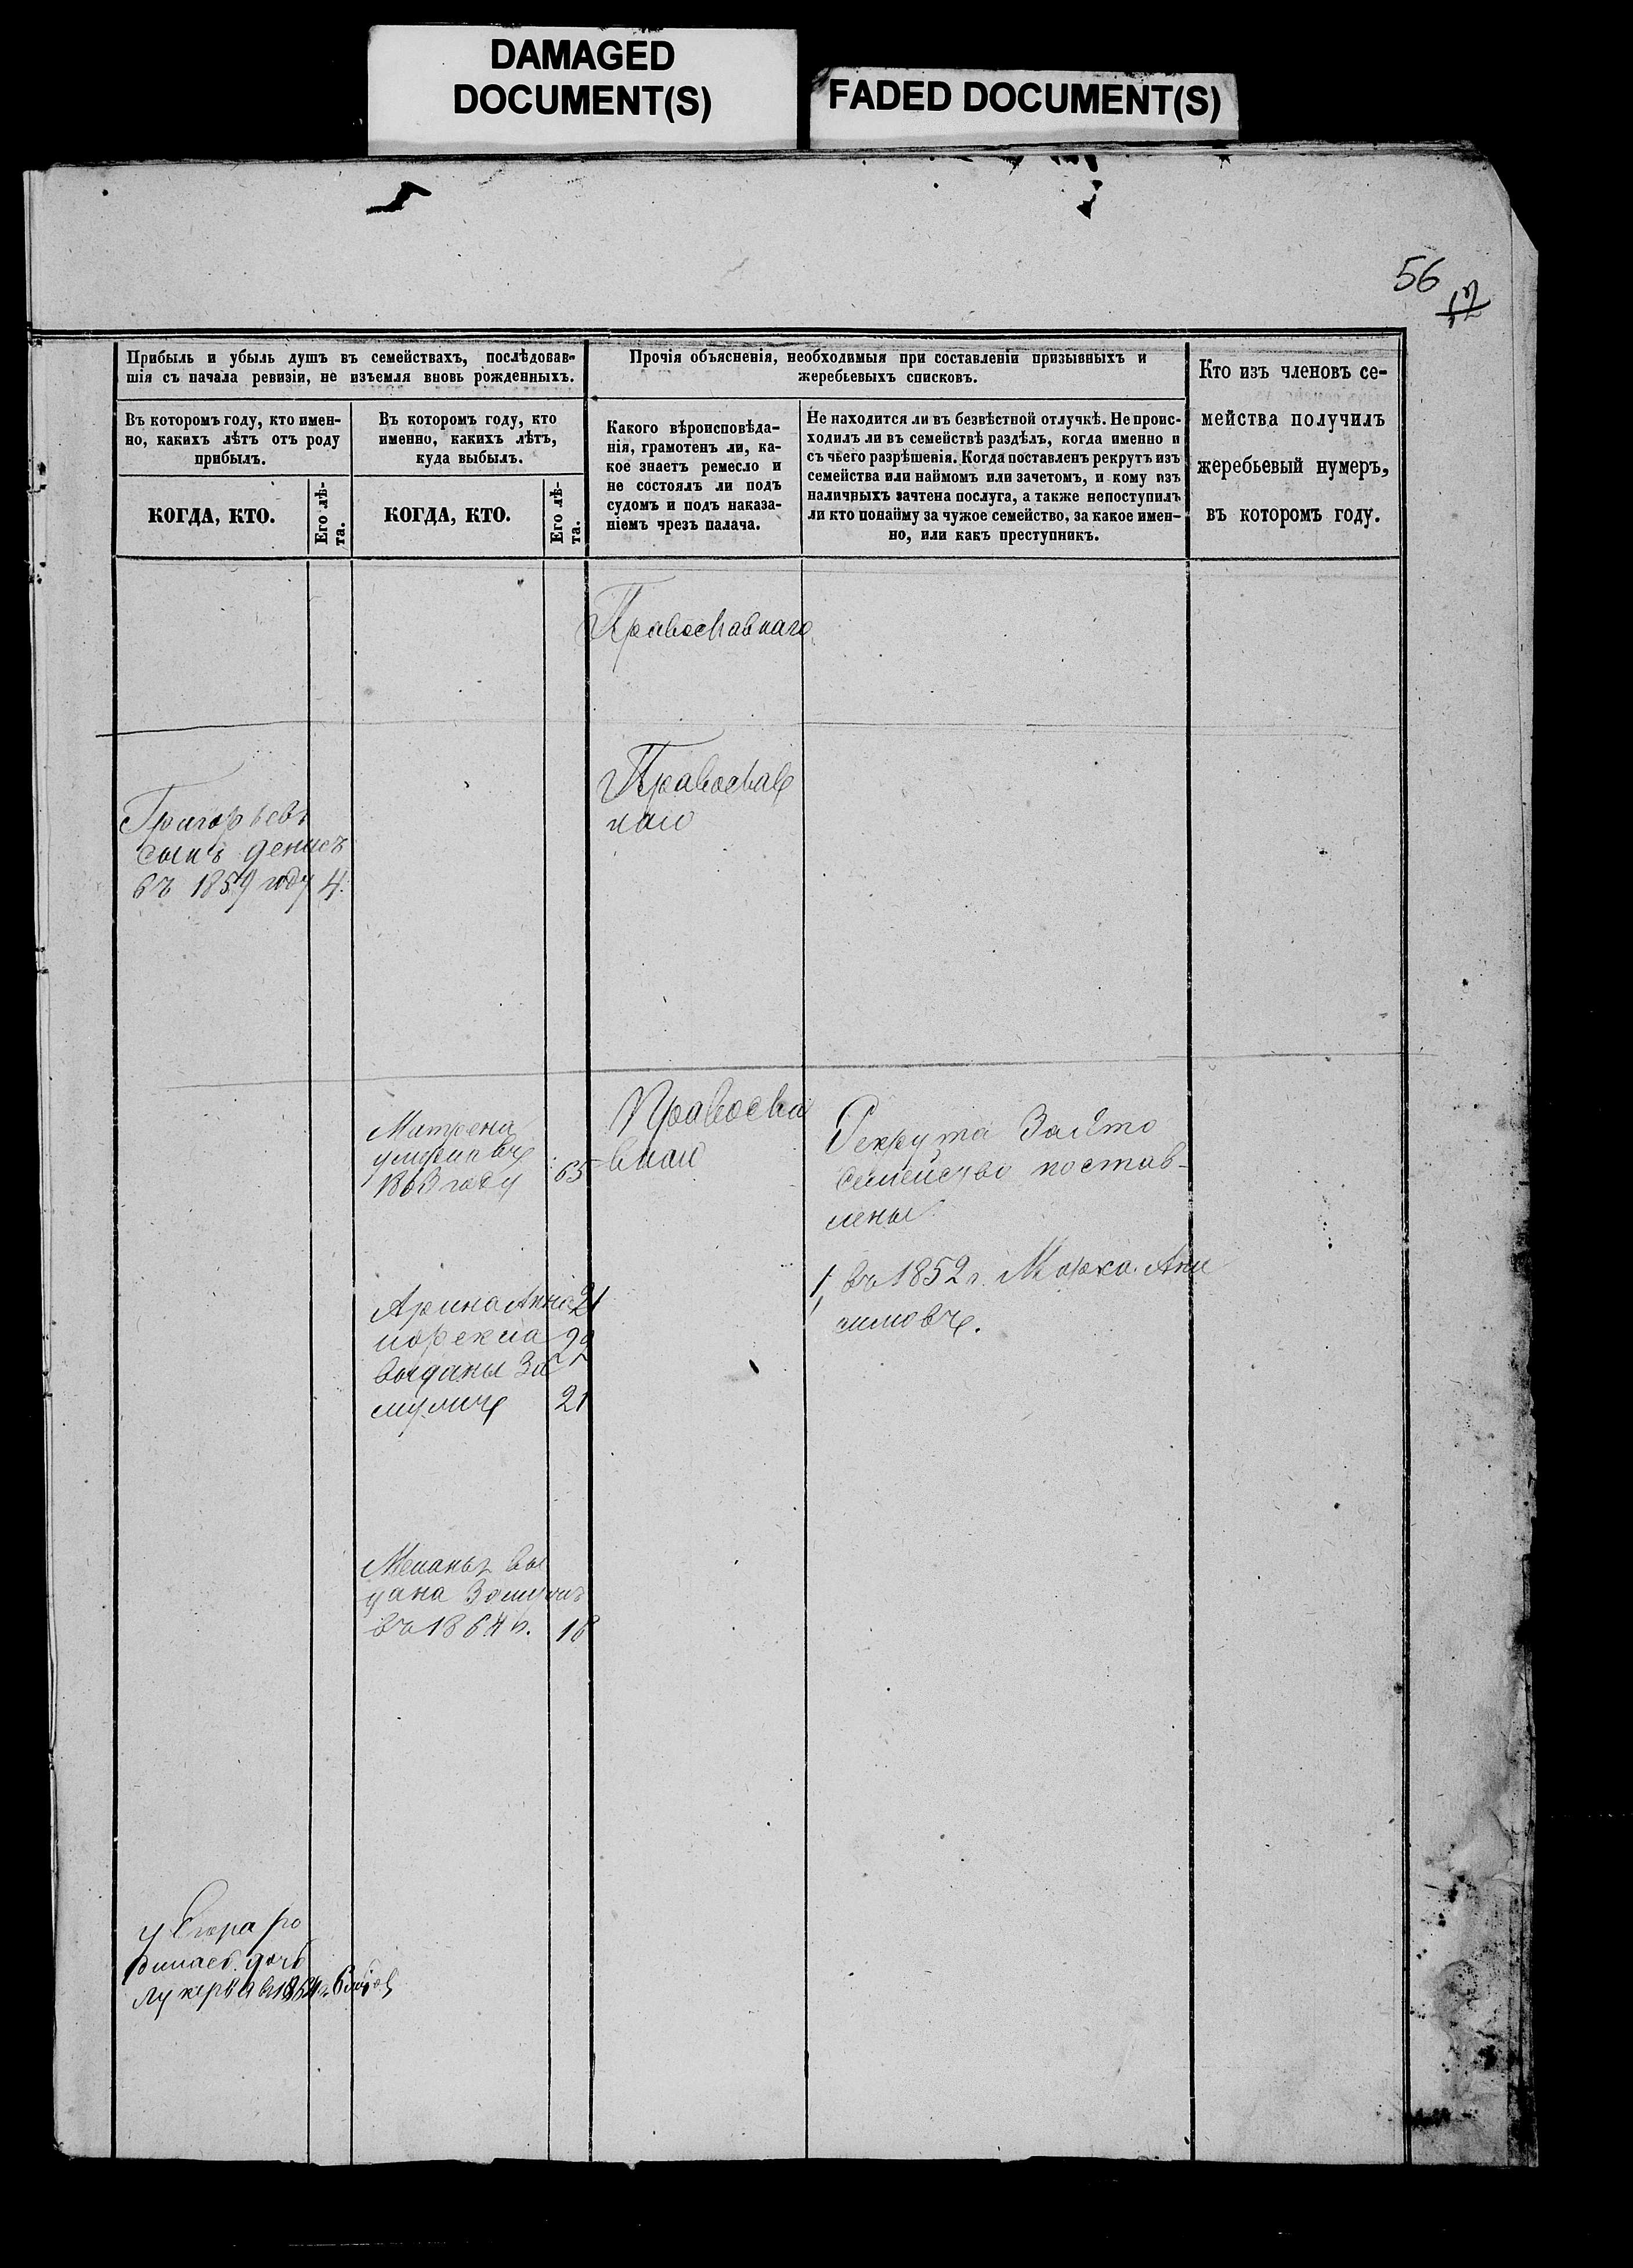 DAMAGED
DOCUMENT(S)
FADED DOCUMENT(S)
56
Прибыль и убыль душъ въ семействахъ, послѣдовав-
шія съ начала ревизіи, не изъемля вновь рожденныхъ.
Въ которомъ году, кто имен-
но, какихъ лѣтъ отъ роду
прибылъ.
КОГДА, КТО.
Его лѣ-
та.
Въ которомъ году, кто
именно, какихъ лѣтъ,
куда выбылъ.
КОГДА, КТО.
Его лѣ-
та.
Прочія объясненія, необходимыя при составленіи призывныхъ и
жеребьевыхъ списковъ.
Какого вѣроисповѣда-
нія, грамотенъ ли, ка-
кое знаетъ ремесло и
не состоялъ ли подъ
судомъ и подъ наказа-
ніемъ чрезъ палача.
Не находится ли въ безвѣстной отлучкѣ. Не проис-
ходилъ ли въ семействѣ раздѣлъ, когда именно и
съ чьего разрѣшенія. Когда поставленъ рекрутъ изъ
семейства или наймомъ или зачетомъ, и кому изъ
наличныхъ зачтена послуга, а также непоступилъ
ли кто понайму за чужое семейство, за какое имен-
но, или какъ преступникъ.
Кто изъ членовъ се-
мейства получилъ
жеребьевый нумеръ,
въ которомъ году.
Православнаго
Православ
наго
Григорьевъ
сынъ денисъ
въ 1859 году 4.
Матрена
умерла въ
1863 году 65
Правосла
внаго
Рекрута За Это
Семейство постав-
лены
1, въ 1852 г. Марка Ани
симовъ.
Арина Анна 21
выданы За
мужъ 21
Меланья вы
дана Замужъ
въ 1864 г. 18
у Егора ро
дилась дочь
Лукерья въ 1864 г.